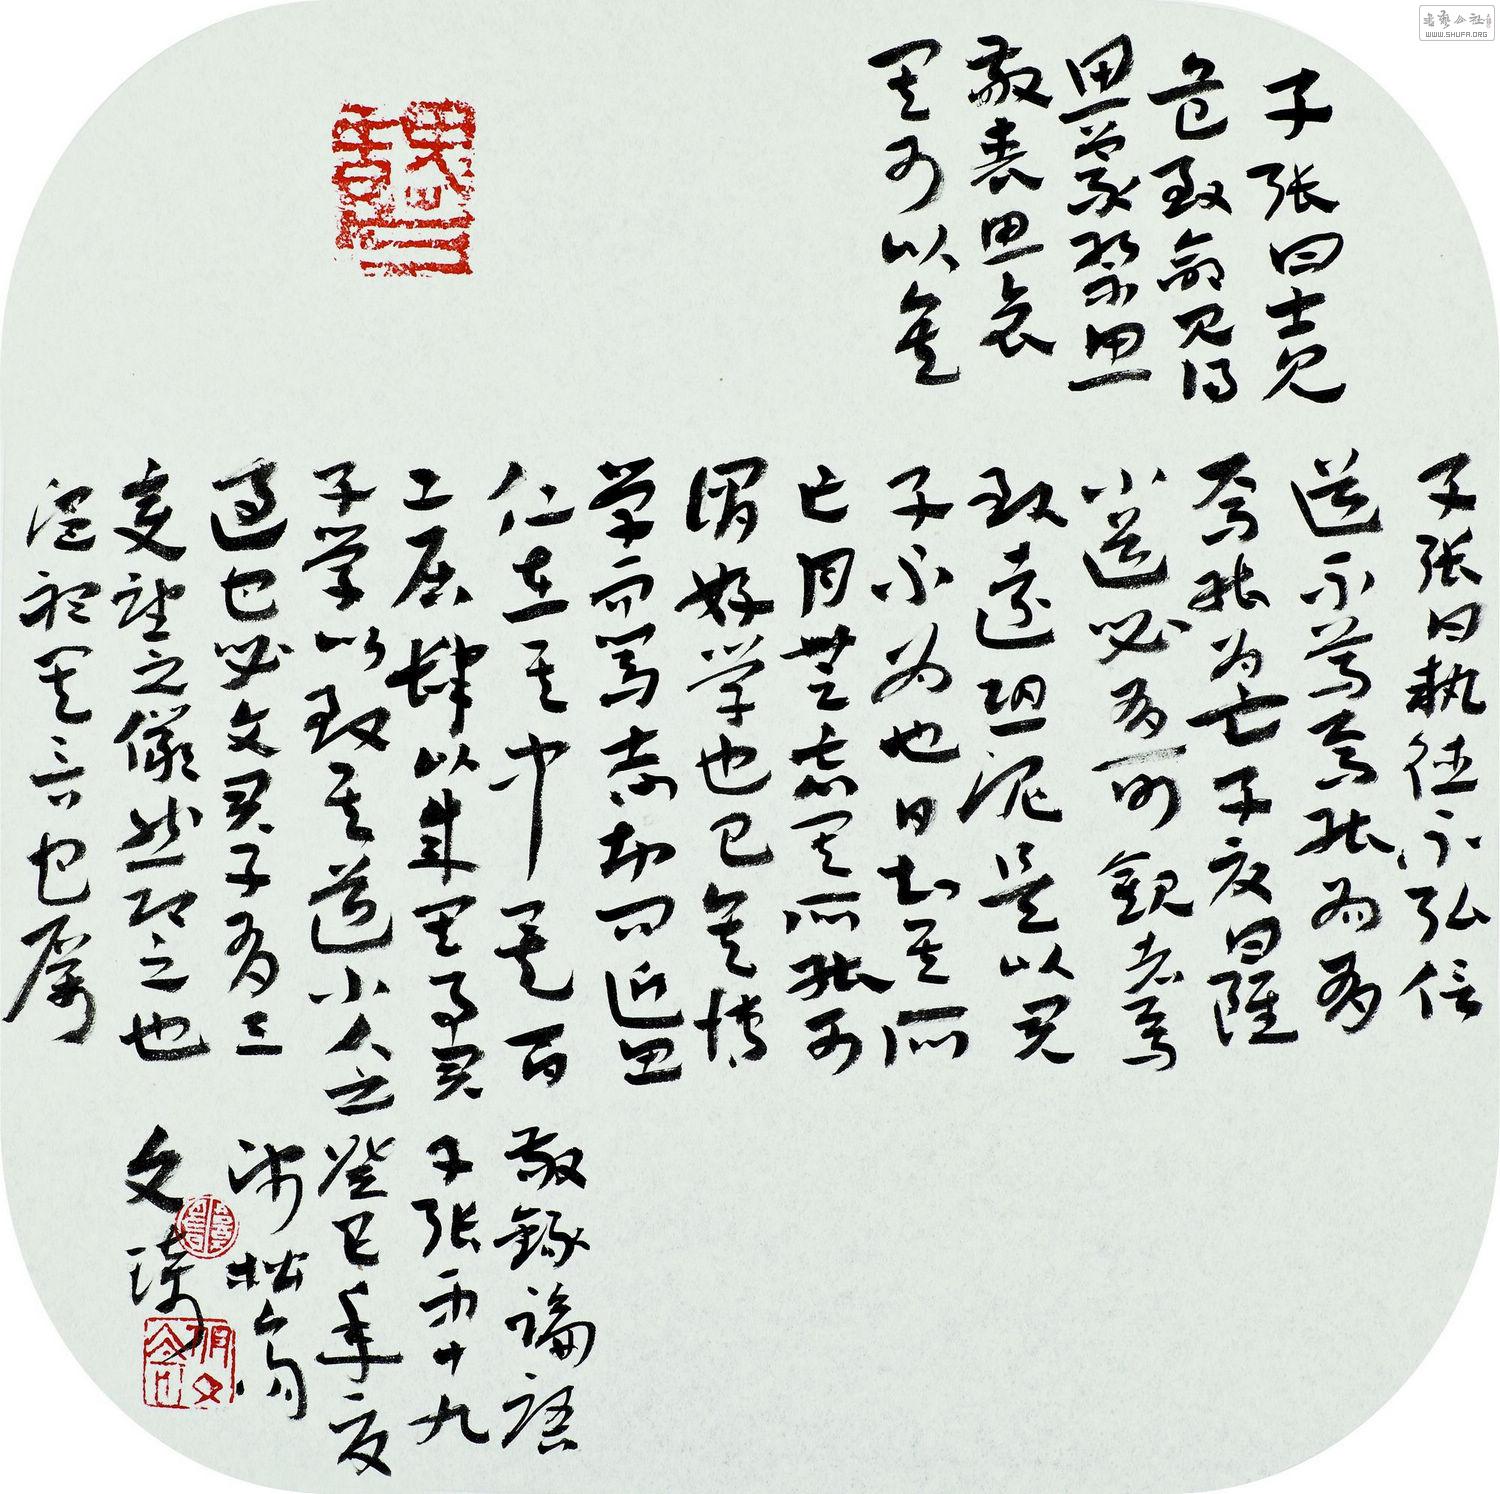 子张曰士见
危致命见得
思義祭思
敬丧思哀
其可以矣
子张曰執德不弘信
道不篤焉能为有
焉能为亡子夏曰雖
小道必有可觀者焉
致遠恐泥是以君
子不为也日知其所
亡月無忘其所能可
謂好学也已矣博
学而篤志切问近思
仁在其中矣百
工居肆以成其事君
子学以致其道小人之
过也必文君子有三
变望之儼然即之也
温其言也厉
敬録論語
子张第十九
癸巳年夏
文琦
WWW.SHUFA.ORG